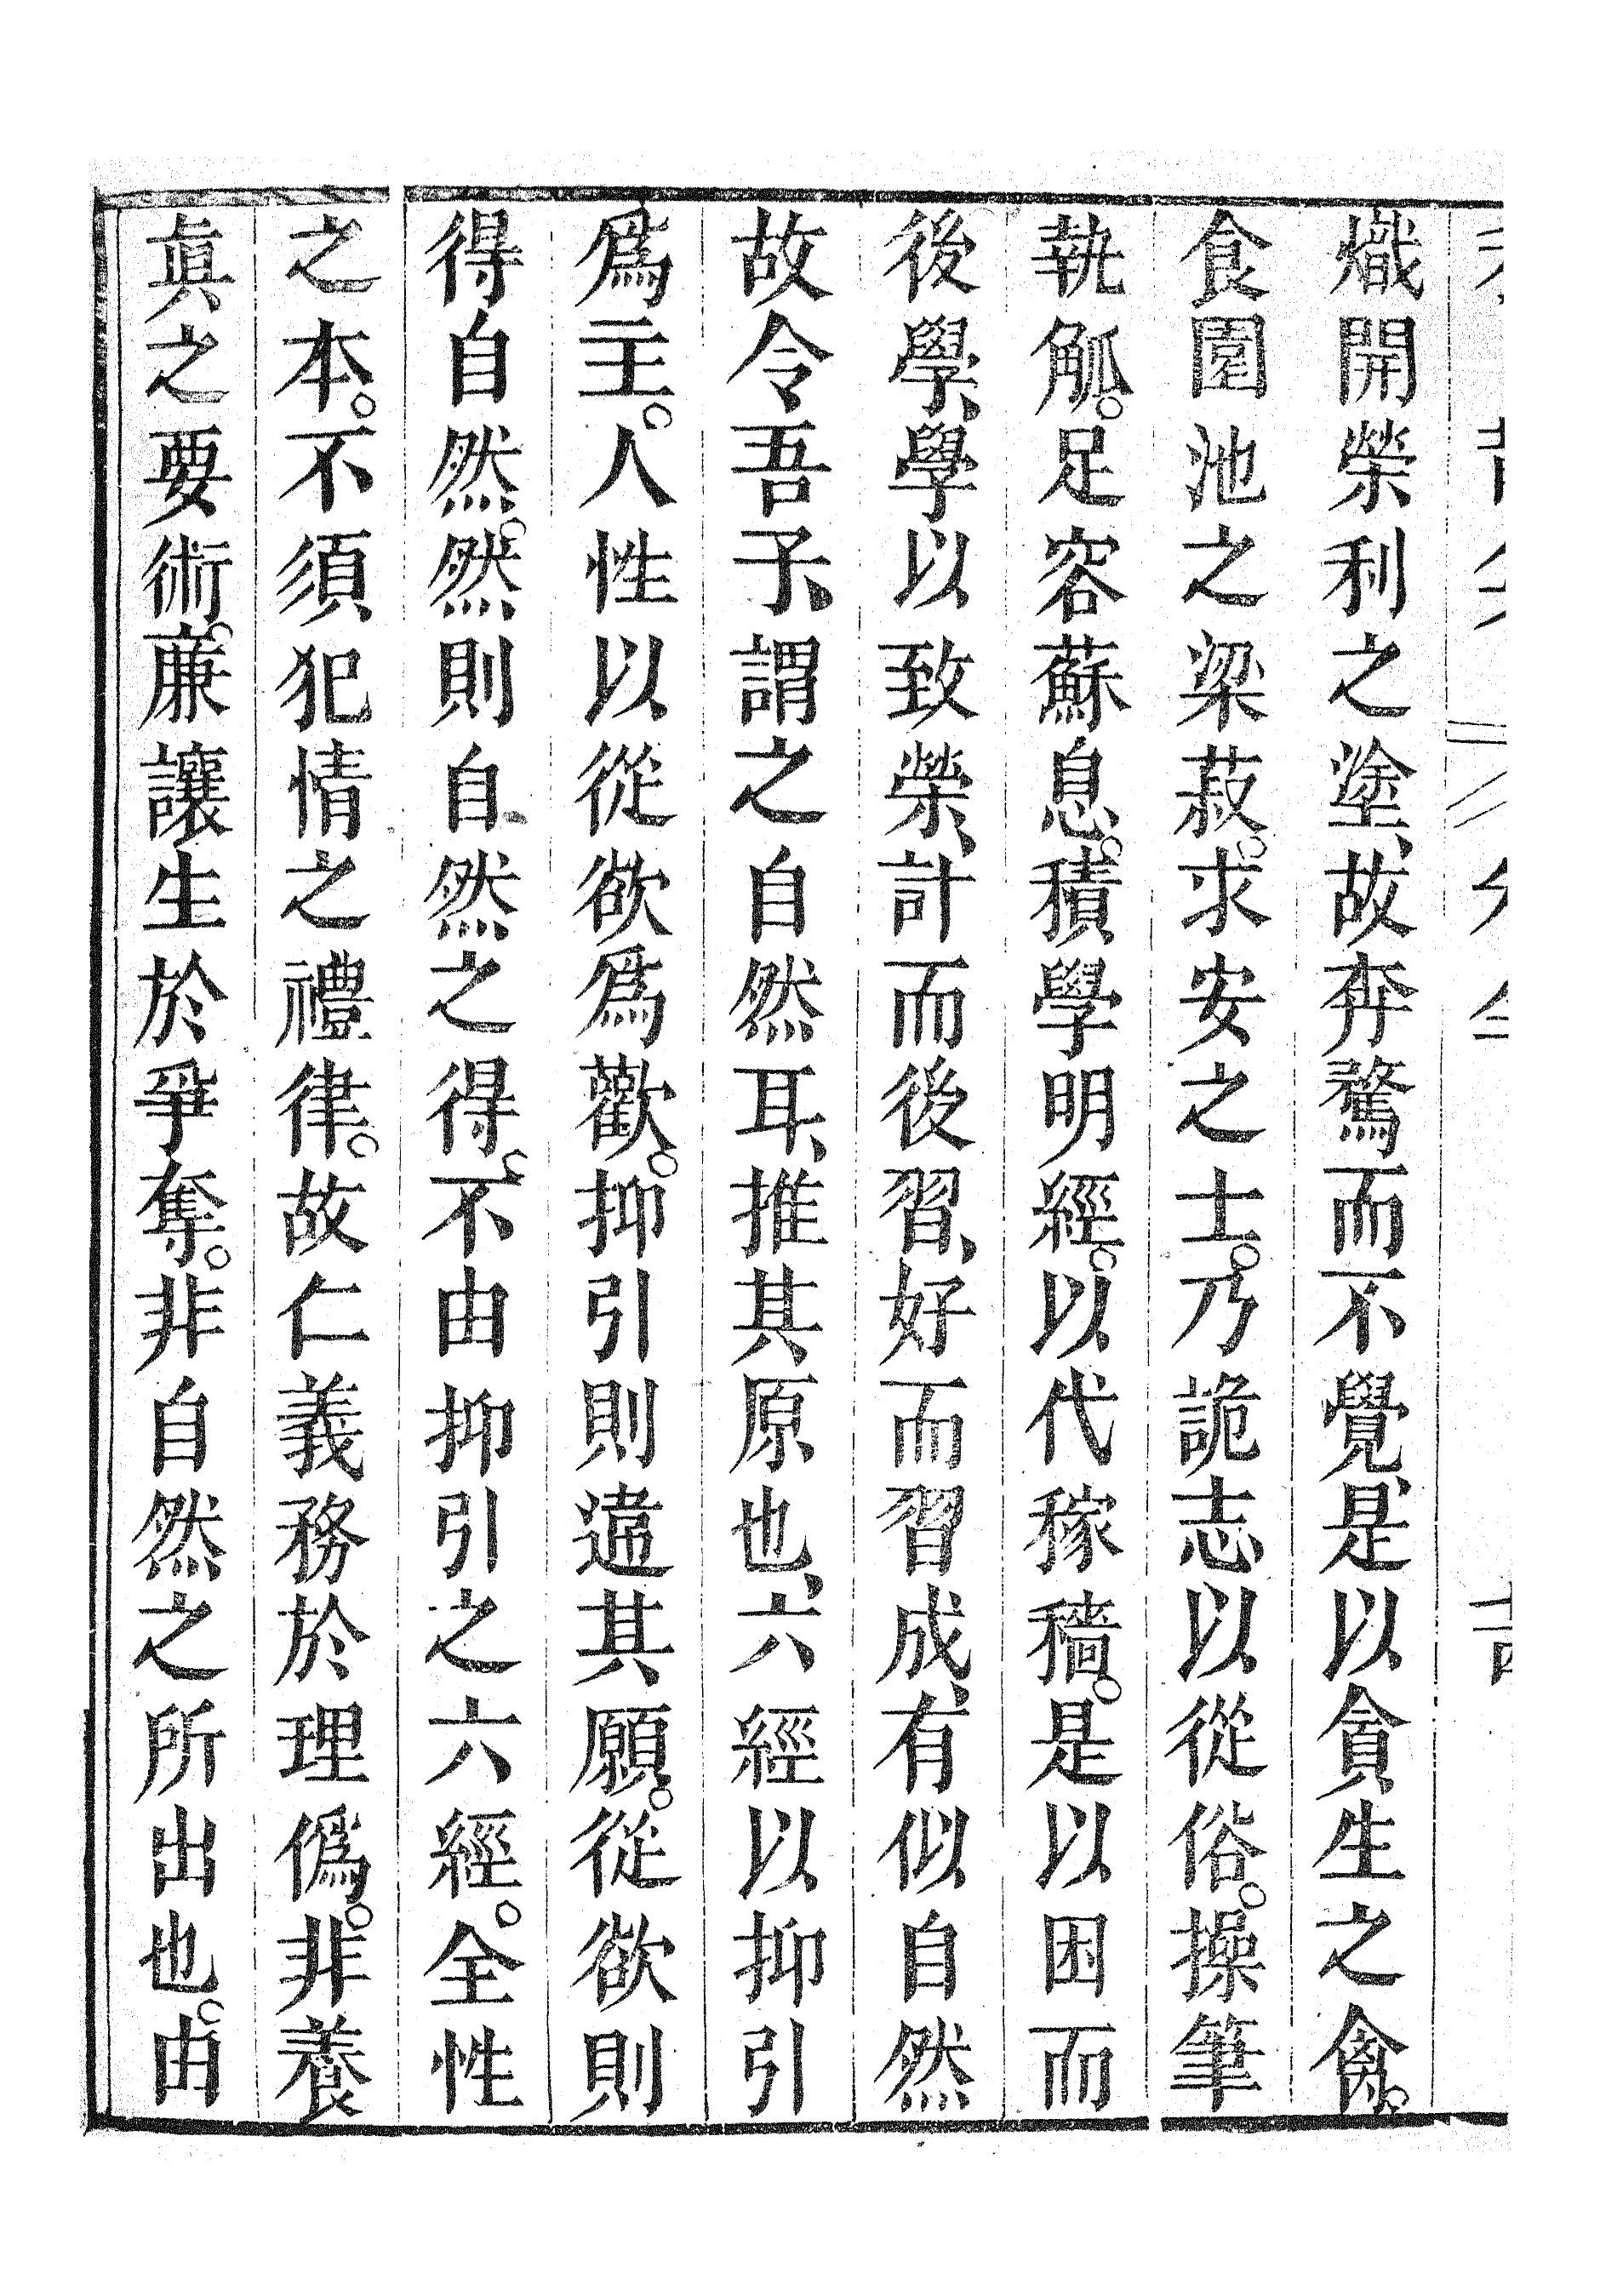 熾開榮利之塗、故奔騖而不覺、是以貪生之禽。
食園池之梁菽。求安之士。乃詭志以從俗。操筆
執觚。足容蘇息。積學明經。以代稼穡。是以困而
後學、學以致榮、計而後習、好而習成、有似自然
故令吾子、謂之自然耳、推其原也、六經以抑引
爲主。人性以從欲爲歡。抑引則違其願。從欲則
得自然。然則自然之得。不由抑引之六經。全性
之本。不須犯情之禮律。故仁義務於理僞。非養
眞之要術。廉讓生於爭奪。非自然之所出也。由